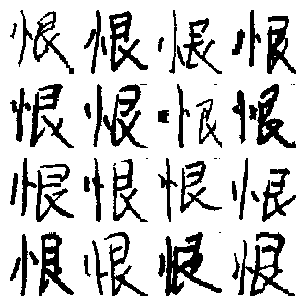 恨恨恨恨
恨恨恨恨
恨恨恨恨
恨恨恨恨